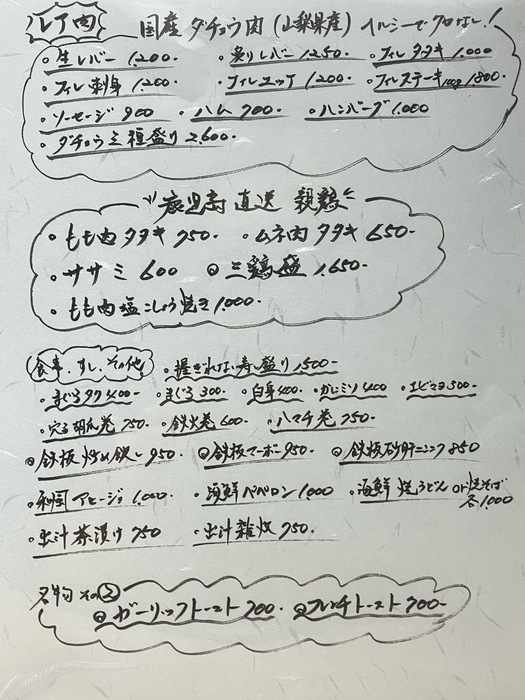 レア肉 国産 ダチョウ肉 (山梨県産) ヘルシーで
・生レバー 1,200- ・炙りレバー 1,250- ・フィレタタキ 1,000-
・フィレ刺身 1,200- ・フィレユッケ 1,200- ・フィレステーキ100g 1,800-
・ソーセージ 900 ・ハム 700- ・ハンバーグ 1,000-
・ダチョウ三種盛り 2,600-
鹿児島 直送 親鶏
・もも肉タタキ 750- ・ムネ肉タタキ 650-
・ササミ 600 ◎三鶏盛 1,650-
・もも肉塩こしょう焼き 1,000-
食事、すし、その他 ・握ぎれない寿し盛り 1,500-
・まぐろタク 400- ・まぐろ 300- ・白身 400- ・カニミソ 400 ・エビマヨ 300-
・穴子胡瓜巻 750- ・鉄火巻 600- ・ハマチ巻 750-
◎鉄板 950- ◎鉄板マーボー 950- ◎鉄板砂肝ニンニク 850
・アヒージョ 1,000- ・海鮮ペペロン 1,000 ・海鮮焼うどんor焼そば 各1,000
・出汁茶漬け 750 ・出汁雑炊 750-
名物 その②
◎ガーリックトースト 700- ◎フレンチトースト 700-